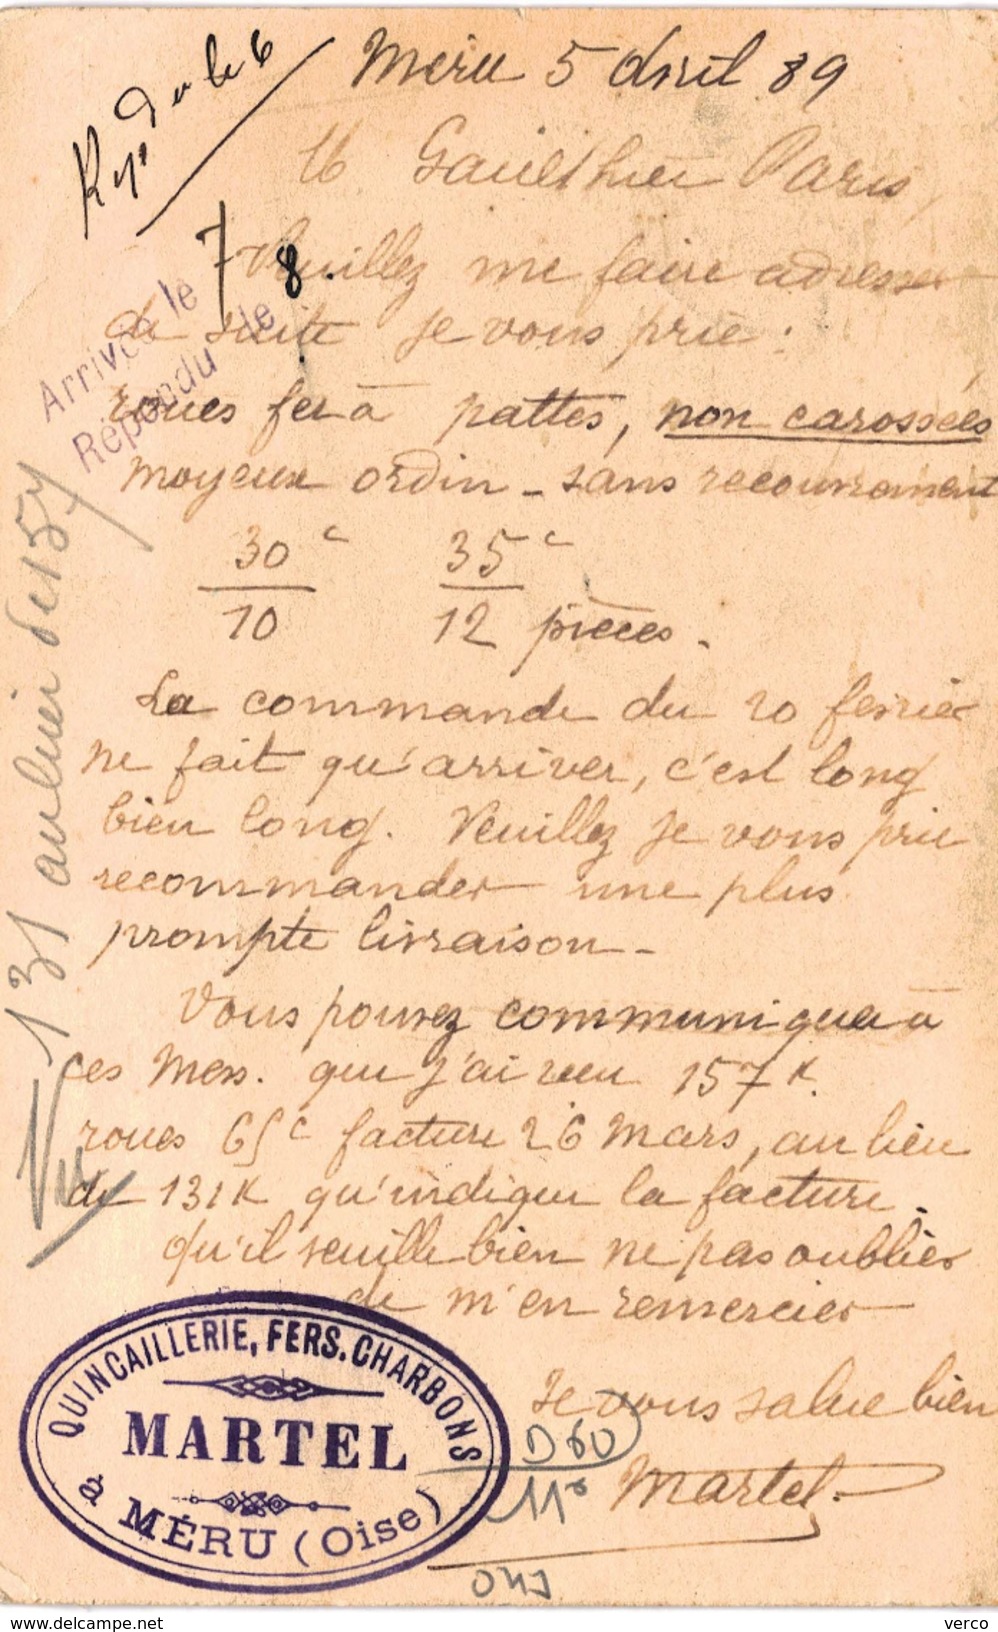 Méru 5 avril 89
Rep. du le 6
M. Gaulthier Paris,
Arrivée le 7
Répondu le 8.
Veuillez me faire adresser
de suite je vous prie :
roues fer à pattes, non carossées
moyeux ordin - sans recouvrement
30c 35c
10 12 pièces.
La commande du 20 fevrier
ne fait qu'arriver, c'est long
bien long. Veuillez je vous prie
recommander une plus
prompte livraison -
Vous pouvez communiquer à
ces Mess. que j'ai reçu 157 K.
roues 65c facture 26 Mars, au lieu
de 131K qu'indique la facture.
qu'il veuille bien ne pas oublier
de m'en remercier
Je vous salue bien
Martel.
131 au lieu de 157
Vu
QUINCAILLERIE, FERS. CHARBONS
MARTEL
à MÉRU (Oise)
D 60
11
www.delcampe.net
verco